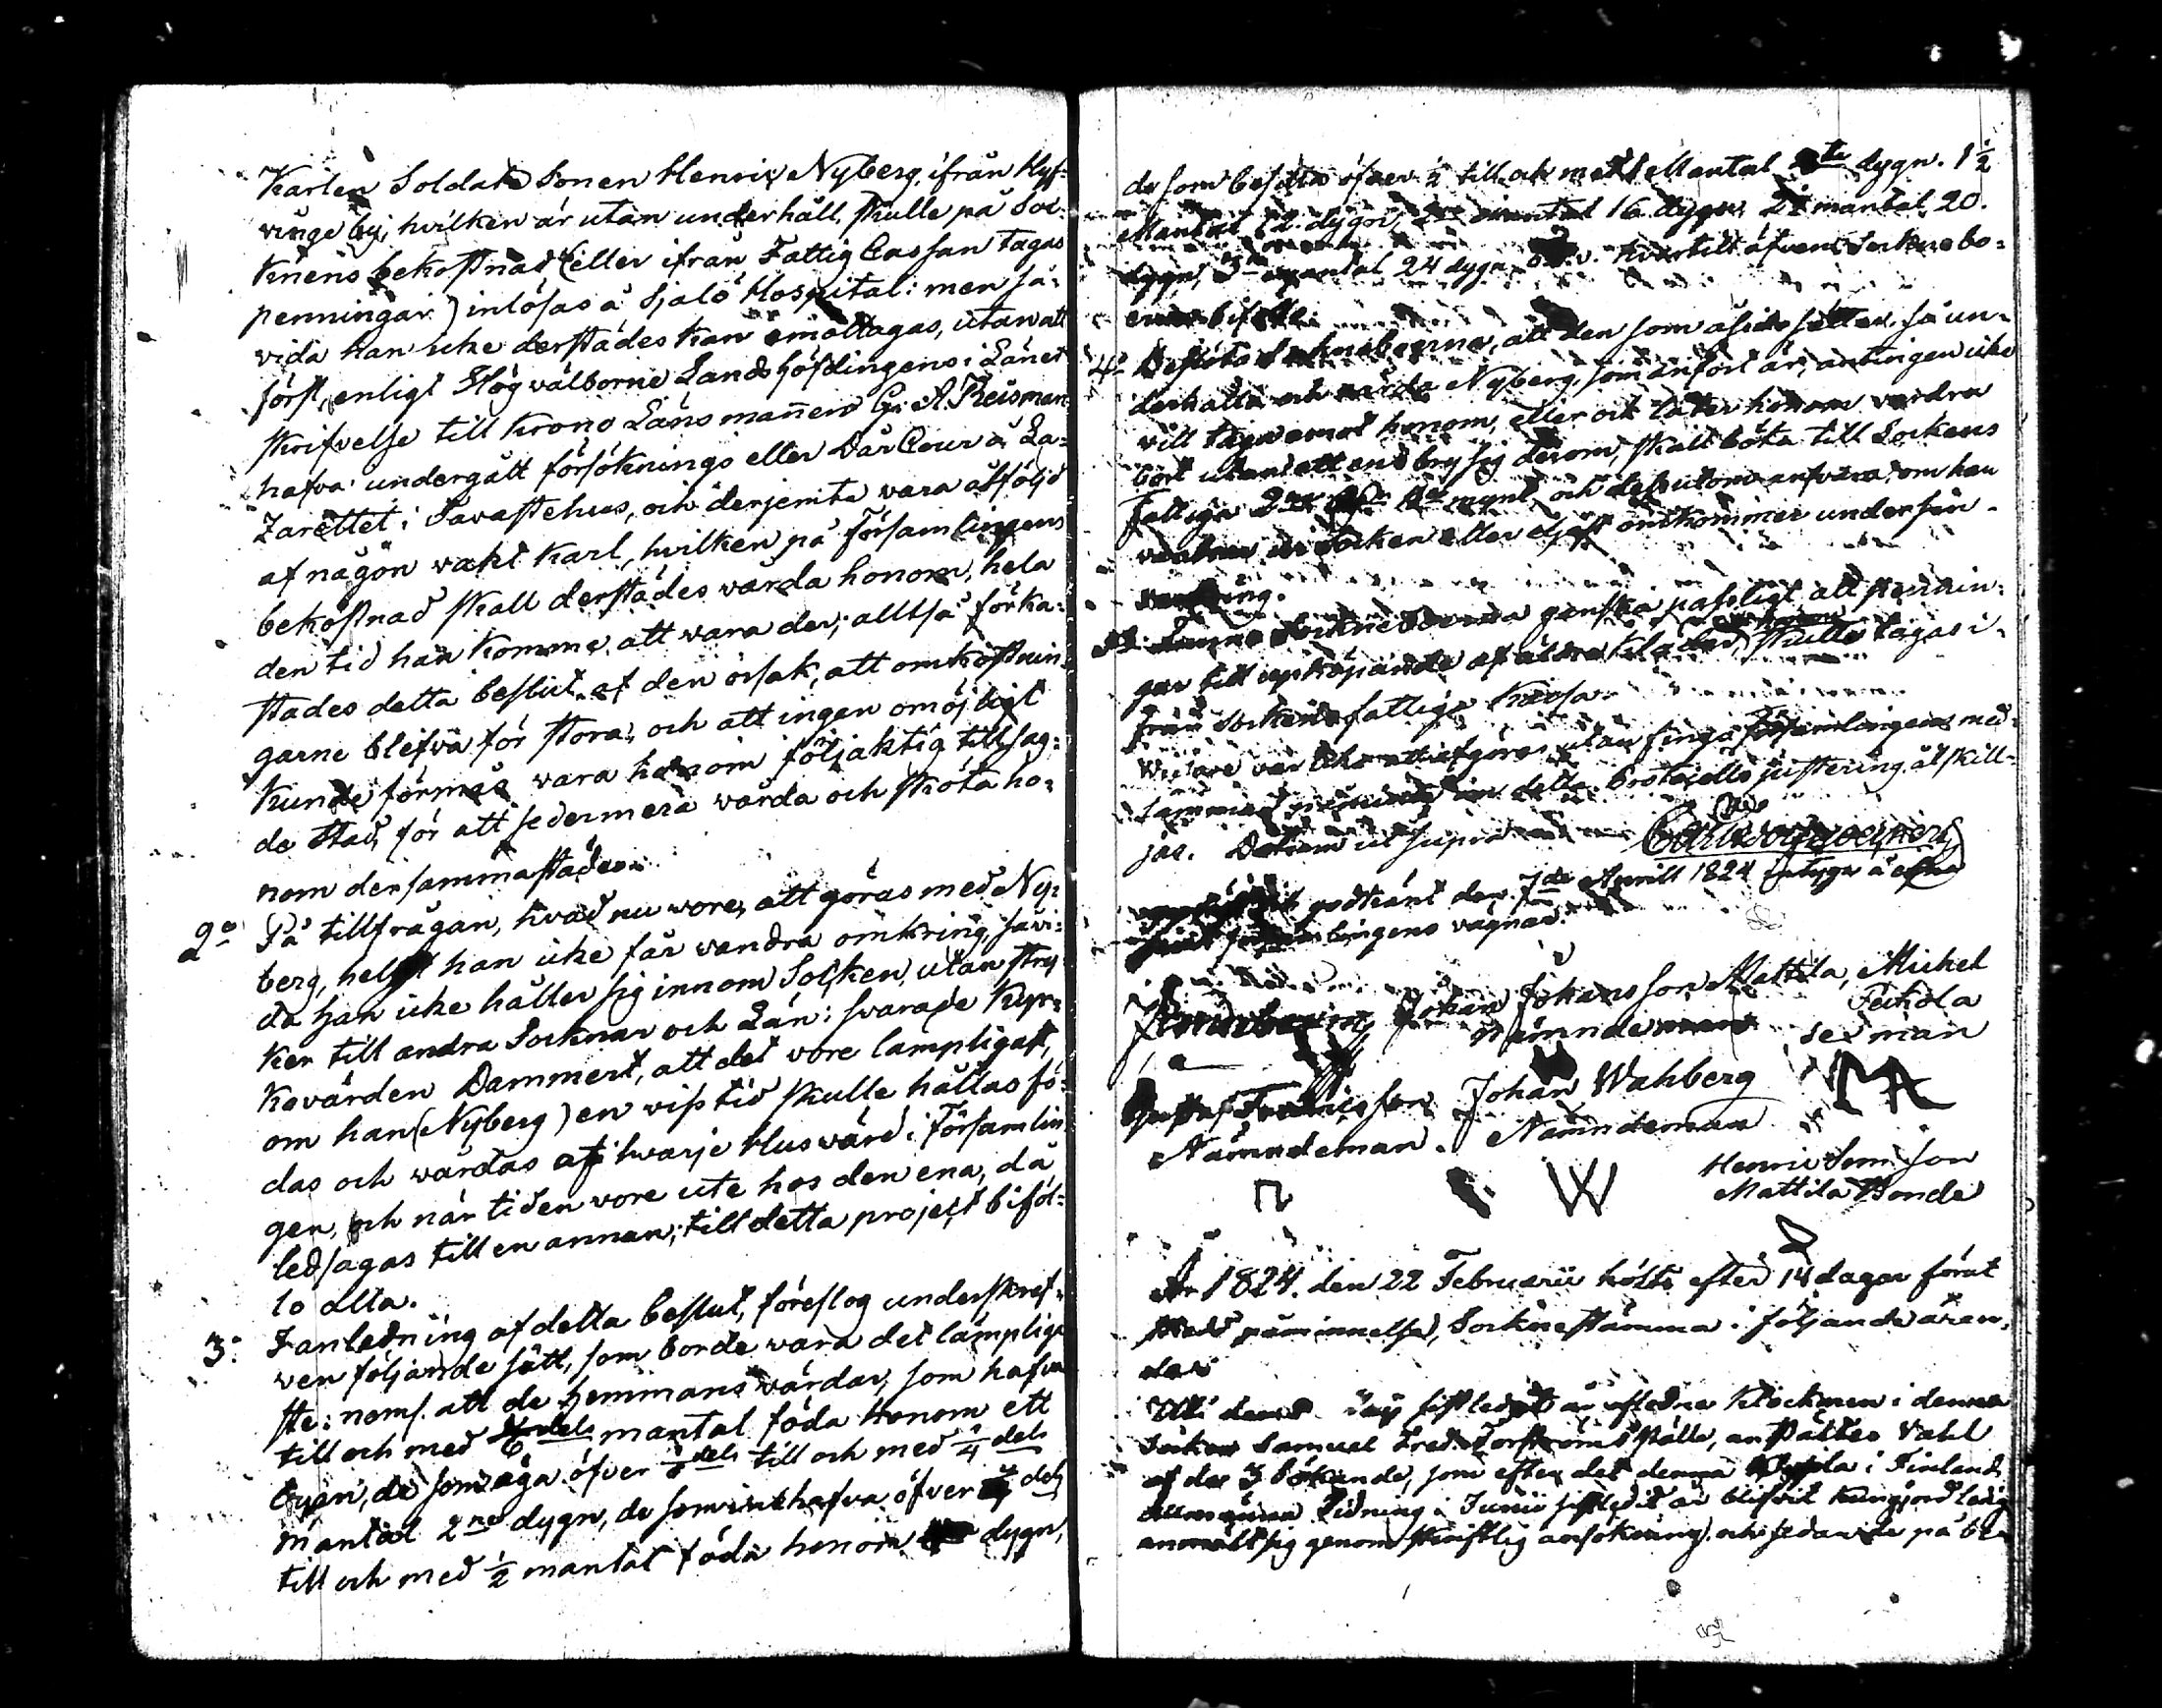 Karlen Soldats Sonen Henric Nyberg, ifrån Hyf-
vinge by, hvilken är utan underhåll, skulle på Soc-
knens bekostnad (eller ifrån Fattig Cassan tagas
penningar) inlösas å Sjalö Hospital: men så-
vida han icke derstädes kan emottagas, utan att
först, enligt Högvälborne Landshöfdingens i Länet
skrifvelse till Krono Länsmannen G. A. Reisman
hafva undergått försöknings eller Dår Cour å La-
zarettet i Tavastehus, och derjemte vara åtföljd
af någon vakt Karl, hvilken på Församlingens
bekostnad skall derstädes vårda honom, hela
den tid han komme att vara der; alltså förka-
stades detta beslut af den orsak, att omkostnin-
garne blefva för stora, och att ingen omöjligt
kunde förmås vara honom följaktig till sag-
de stad, för att sedermera vårda och sköta ho-
nom dersammastädes.
2o På tillfrågan, hvad nu vore att göras med Ny-
berg, helst han icke får vandra omkring, såvi-
da han icke håller sig innom Socken, utan stry-
ker till andra Socknar och Län: svarade Kyr-
kovärden Dammert, att det vore lämpligast,
om han (Nyberg) en viss tid skulle hållas fö-
das och vårdas af hvarje Husvärd i Församlin-
gen, och när tiden vore ute hos den ena, då
ledsagas till en annan; till detta project biföl-
lo alla.
3o I anledning af detta beslut, föreslog underskref-
ven följande sätt, som borde vara det lämplig-
ste: neml. att de hemmans värdar, som hafva
till och med mantal föda honom ett
dygn, de som äga öfver 1/8 dels till och med 1/4 dels
mantal 2ne dygn, de som hafva öfver 1/4 dels
till och med 1/2 mantal föda honom dygn,
de som besitta öfver 1/2 till och med 1 Mantal dygn. 1 1/2
Mantal 12 dygn, 2 mantal 16 dygn, 2 1/2 mantal 20.
dygn, 3 mantal 24 dygn o.s.v. hvartill äfven Socknebo-
erne biföllo.
4o Beslöto Socknboerne, att den som åsidosätter så un-
derhålla och vårda Nyberg, som anfört är, antingen icke
vill taga emot honom, eller ock låter honom vandra
bort utan att ens bry sig derom, skall böta till Sockens
Fattiga 2 mynt, och dessutom ansvara om han
vandrar ur Socken eller eljest omkommer under sin
vandring.
5o Socknboerna ganska passligt att pennin-
gar till uppköpande af kläder, skulle tagas i-
från Sockens fattiga Kassa.
Widare var icke att afgöra, utan fingo Församlingens med-
lemmar detta Protocolls justering åtskill-
jas. Datum ut supra
godkänt den 7de Aprill 1824 intyga å egna
Församlingens vägnar:
Johan Johansson Mattila, Michel
Nämndeman Peckola
sexman
Gustaf Fredricsson Johan Wahberg
Nämndeman. Nämndeman
W
Henric Simsson
Mattila Bonde
År 1824. den 22 Februarii hölts efter 14 dagar förut
skedd påminnelse, Socknestämma i följande ären-
der
Uti den sistledit år afledne Klockaren i denna
Socken Samuel Fred. Forsströms ställe, anstältes Vahl
af de 3 sökande, som efter det denna Syssla i Finlands
allmänna Tidning i Junii sistledit år blifvit kungjord ledig
anmält sig genom skriftlig ansökning, och sedan de på be-